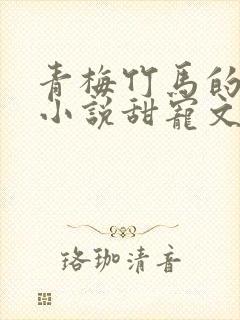 青梅竹馬的
小說甜寵文
珞珈清音